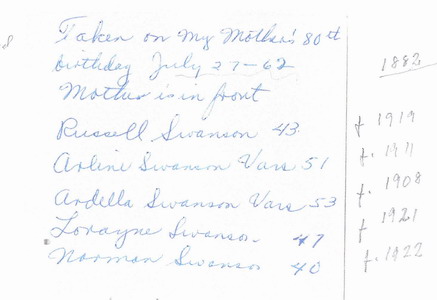 Taken on My Mother's 80th
birthday July 27-62
1882
Mother is in front
Russell Swanson 43 f 1919
Arline Swanson Vars 51 f. 1911
Ardella Swanson Vars 53 f. 1908
Lorayne Swanson 47 f 1921
Norman Swanson 40 f. 1922